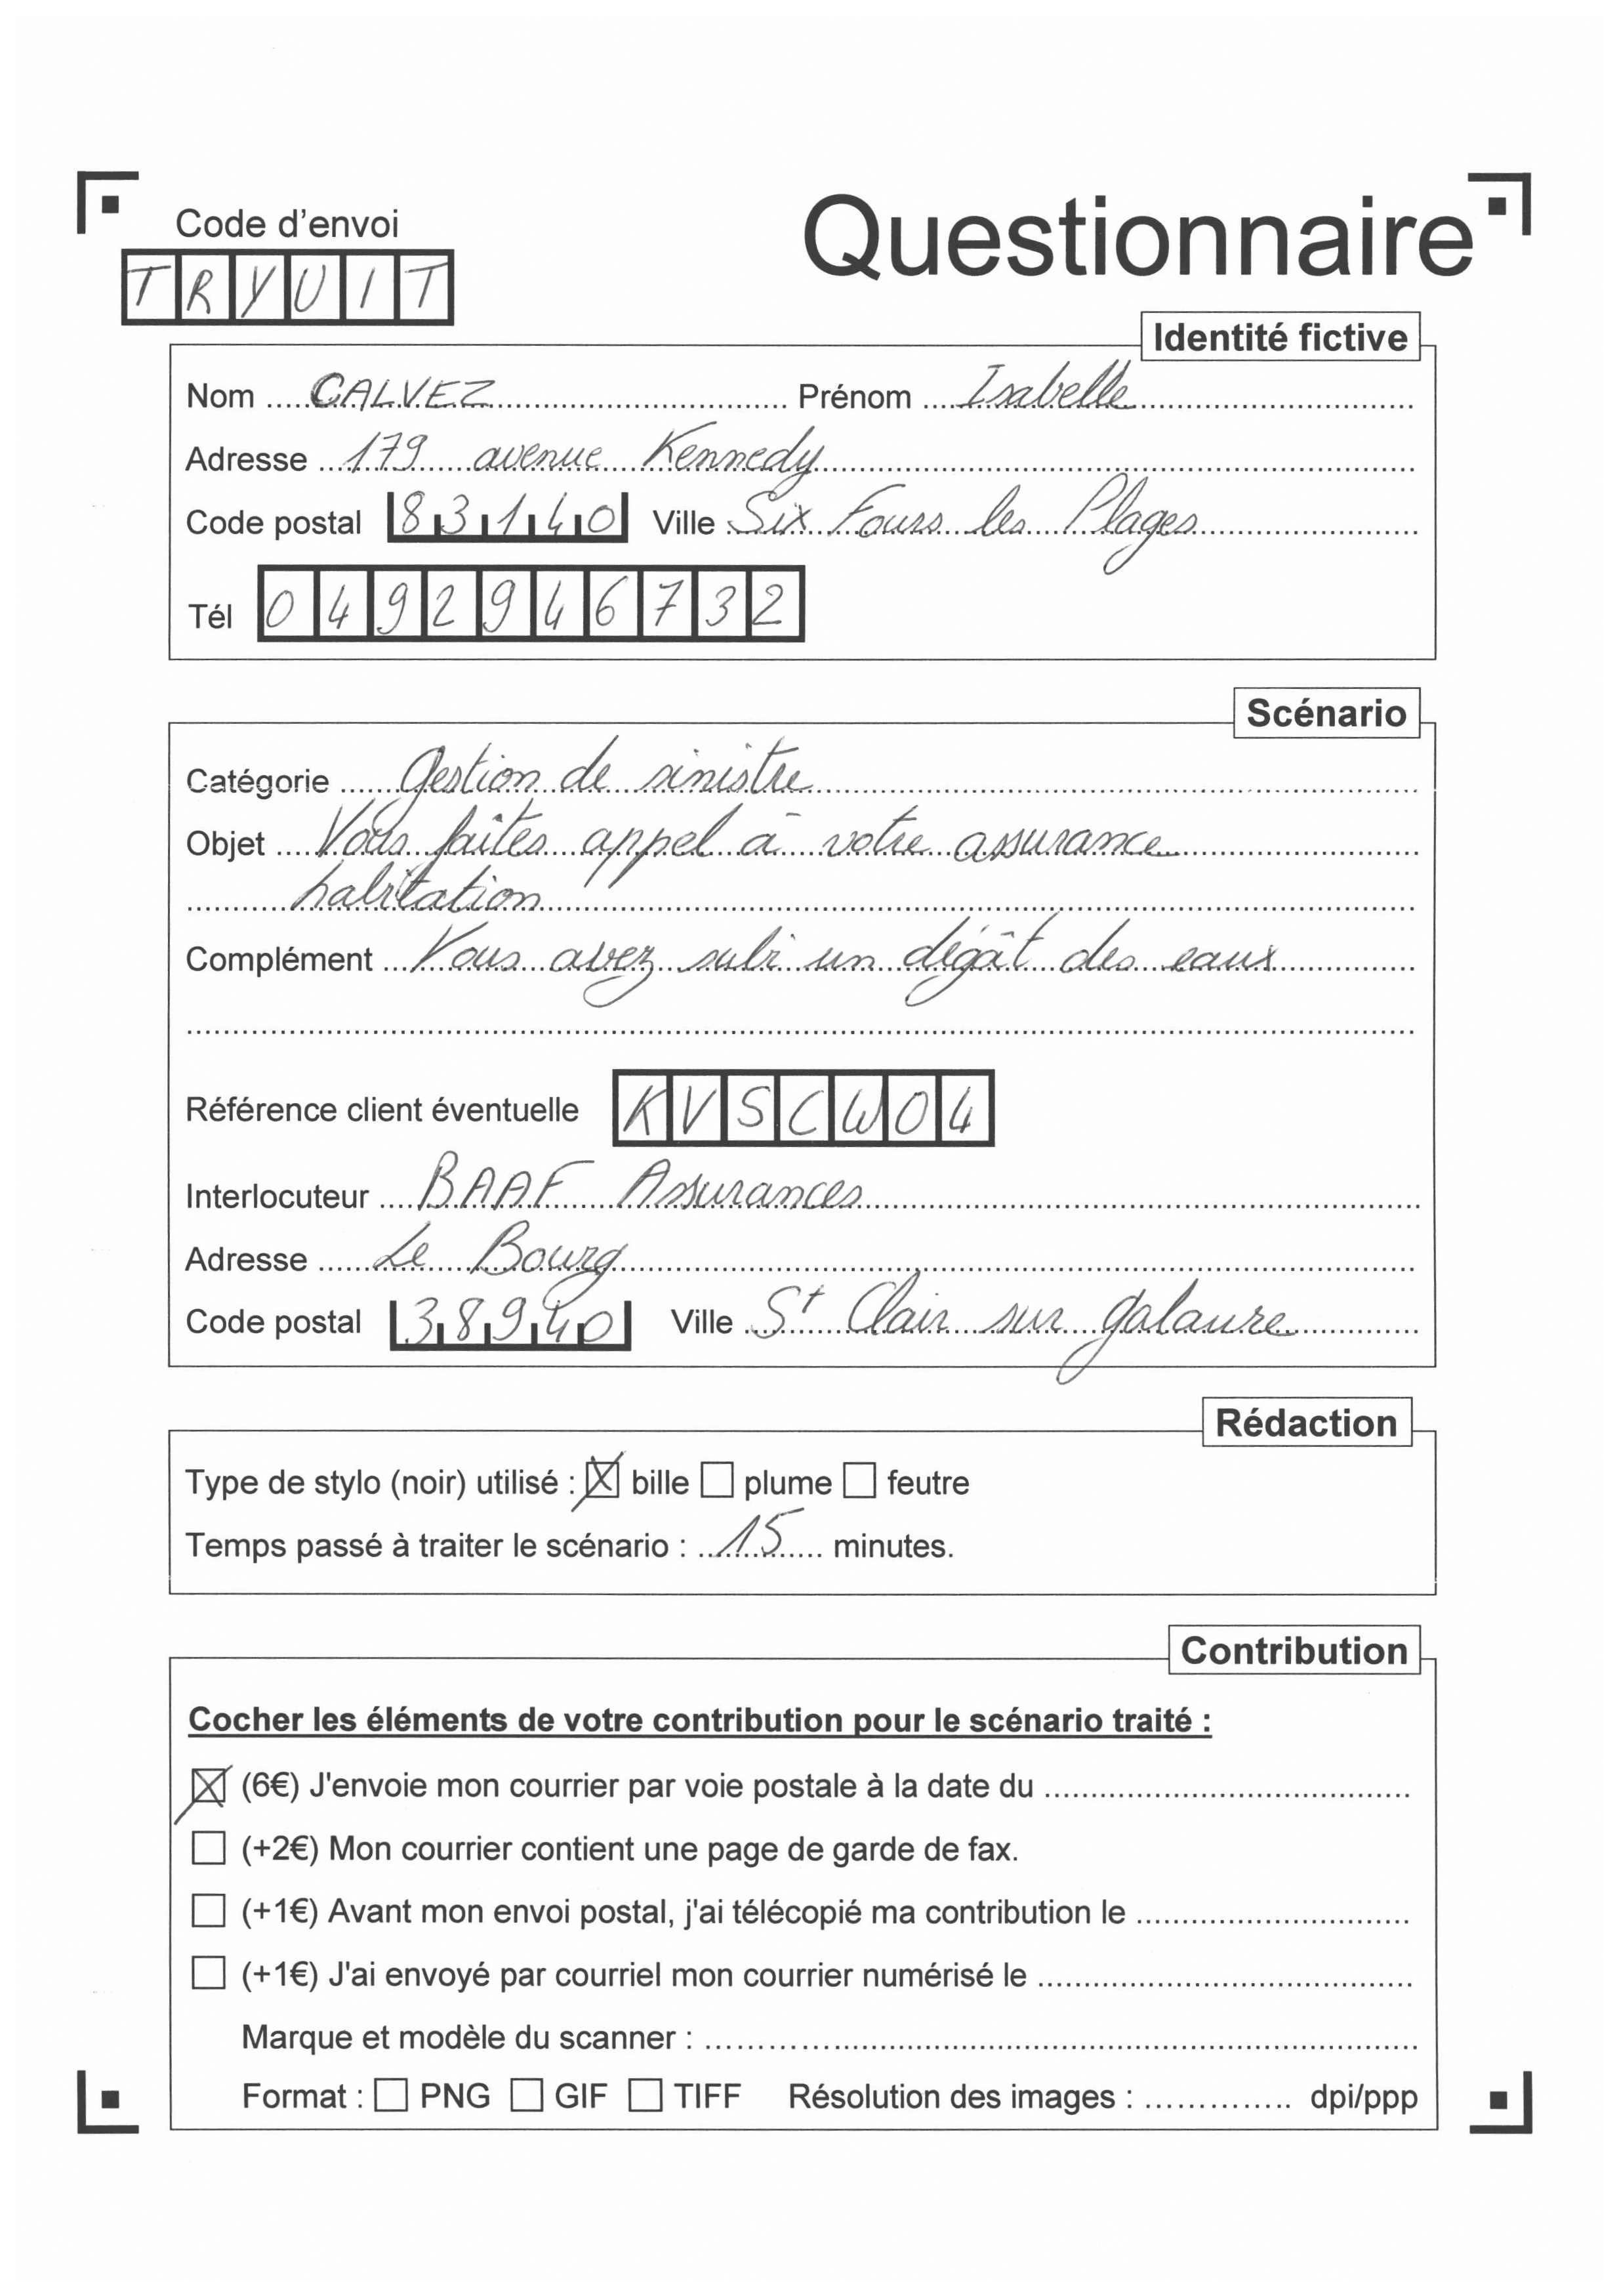 Code d'envoi
Questionnaire
TRYUIT
Identité fictive
Nom CALVEZ Prénom Isabelle
Adresse 179 avenue Kennedy
Code postal 83140 Ville Six Fours les Plages
Tél 0492946732
Scénario
Catégorie Gestion de sinistre
Objet Vous faites appel à votre assurance
habitation
Complément Vous avez subi un dégât des eaux
Référence client éventuelle KVSCW04
Interlocuteur BAAF Assurances
Adresse Le Bourg
Code postal 38940 Ville St Clair sur Galaure
Rédaction
Type de stylo (noir) utilisé : ☒ bille ☐ plume ☐ feutre
Temps passé à traiter le scénario : 15 minutes.
Contribution
Cocher les éléments de votre contribution pour le scénario traité :
☒ (6€) J'envoie mon courrier par voie postale à la date du
☐ (+2€) Mon courrier contient une page de garde de fax.
☐ (+1€) Avant mon envoi postal, j'ai télécopié ma contribution le
☐ (+1€) J'ai envoyé par courriel mon courrier numérisé le
Marque et modèle du scanner :
Format : ☐ PNG ☐ GIF ☐ TIFF Résolution des images : dpi/ppp